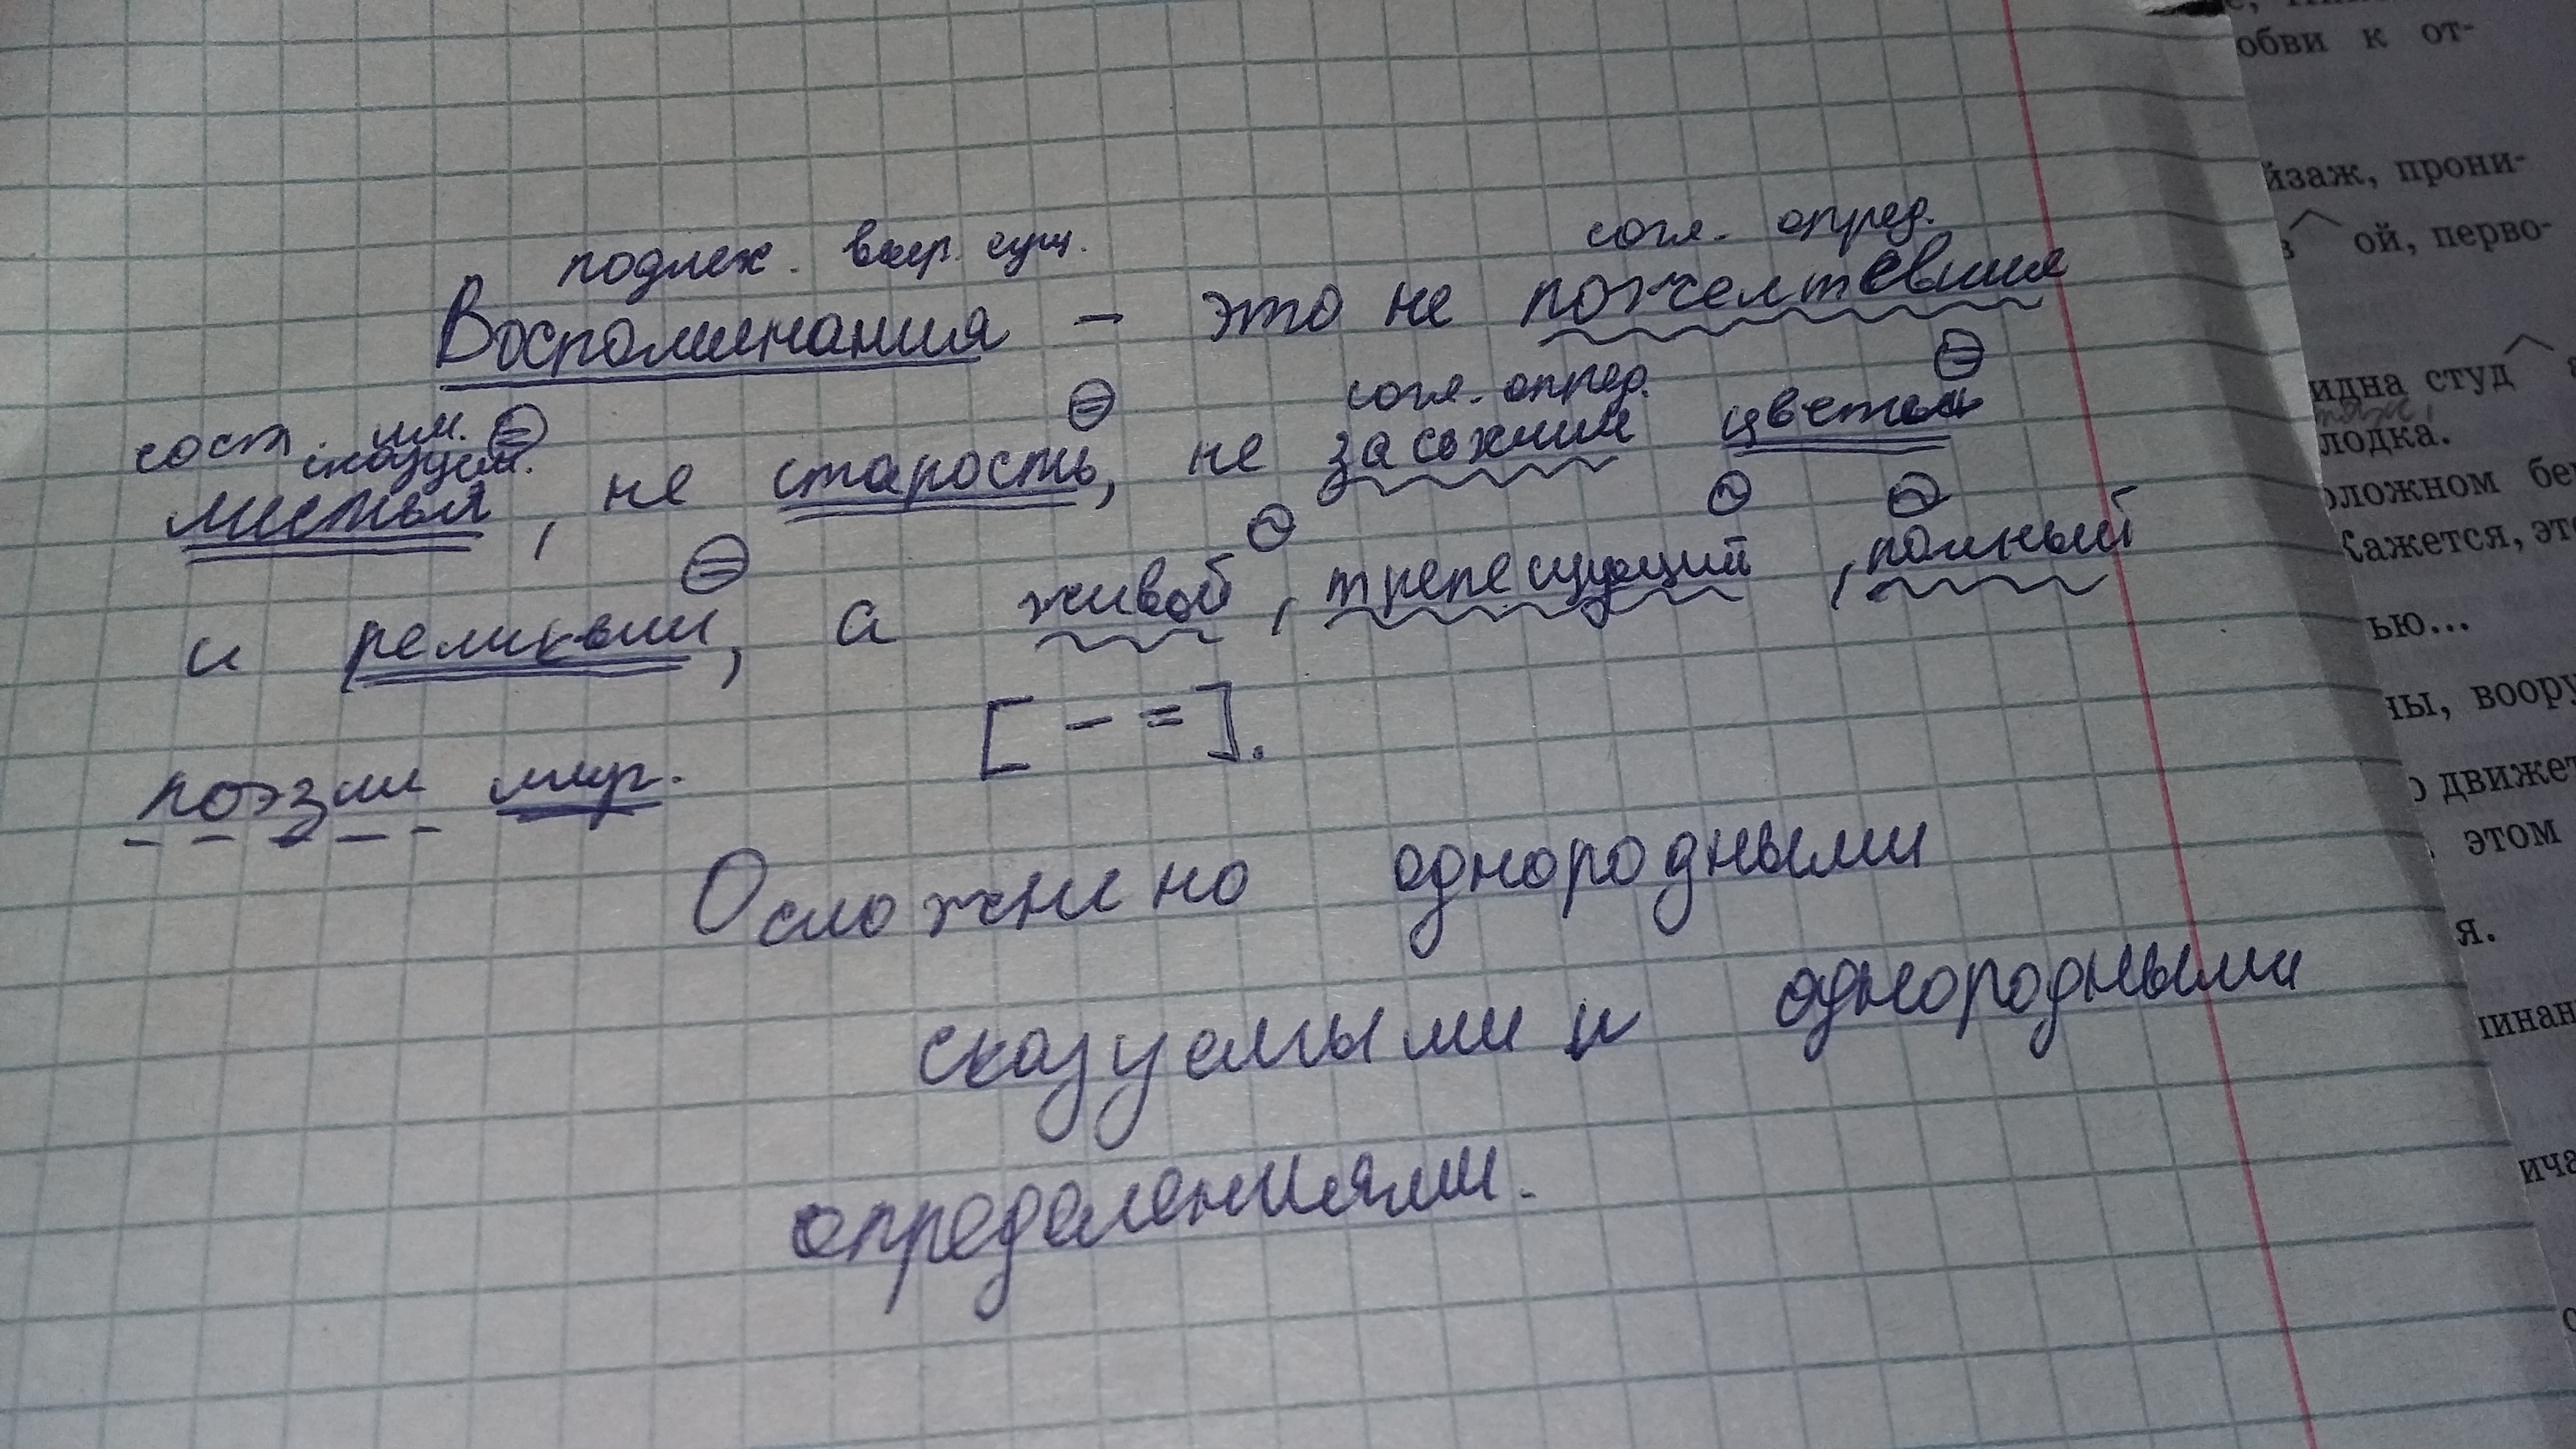 подлеж. выр. сущ. согл. опред.
Воспоминания – это не пожелтевшие
сост. им. сказуем. согл. опред.
листья, не старость, не засохшие цветы
и реликвии, а живой, трепещущий, полный
[ – = ].
поэзии мир.
Осложнено однородными
сказуемыми и однородными
определениями.
обви к от-
йзаж, прони-
ой, перво-
идна студ
лодка.
оложном бе
Кажется, это
ью...
ны, воору
о движет
этом
я.
минан
ича